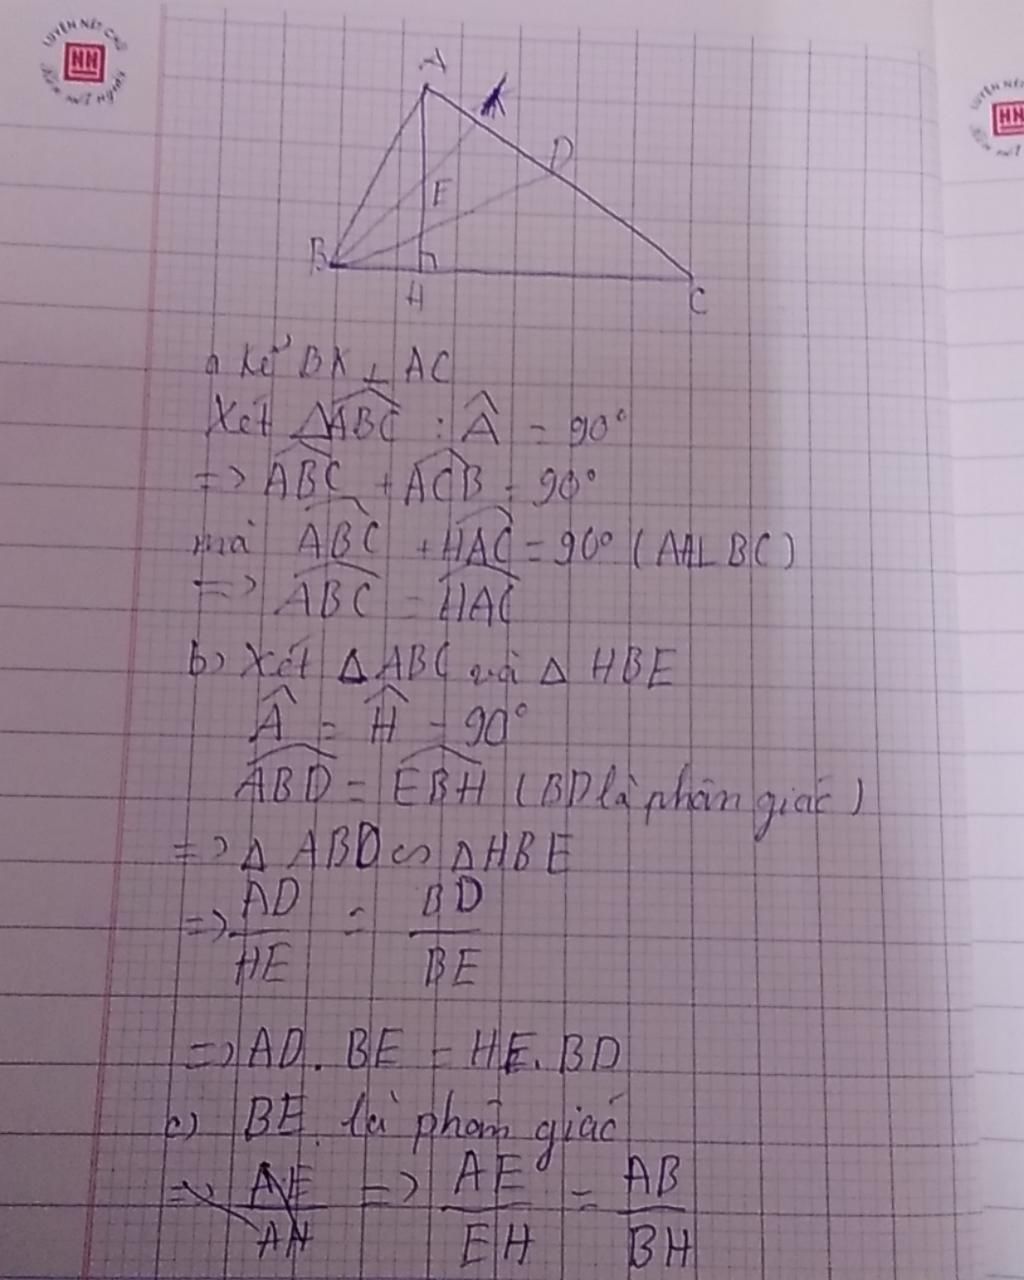 LUYỆN NÉT CHỮ
HN
LUYỆN NÉT
HN
A
K
D
E
B
H
C
a Kẻ BK ⊥ AC
Xét △ABC : Â = 90°
=> ABC + ACB = 90°
mà ABC + HAC = 90° (AH⊥BC)
=> ABC = HAC
b) Xét △ ABC và △ HBE
Â = Ĥ = 90°
ABD = EBH (BD là phân giác)
=> △ ABD ∽ △HBE
=> AD/HE = BD/BE
=> AD. BE = HE. BD
c) BE là phân giác
=> AE/AH => AE/EH = AB/BH